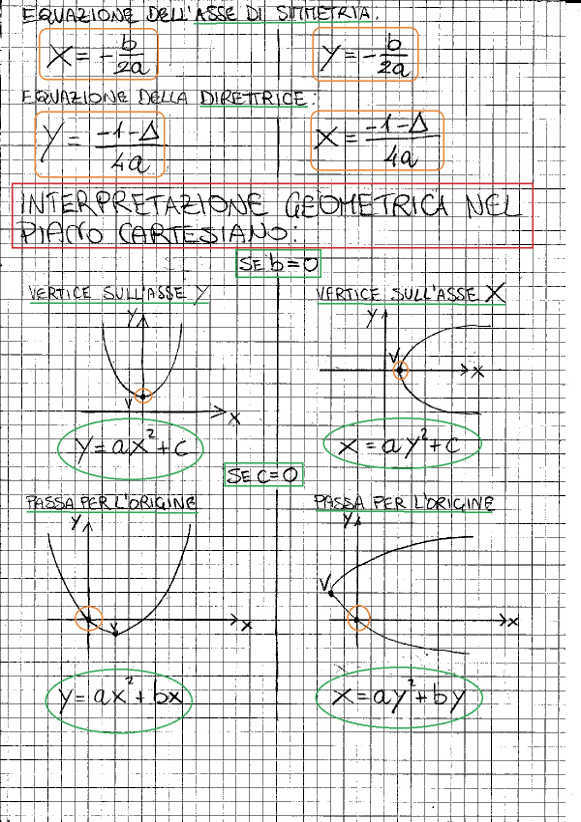 EQUAZIONE DELL'ASSE DI SIMMETRIA.
X = -b/2a
Y = -b/2a
EQUAZIONE DELLA DIRETTRICE:
Y = -1-Δ/4a
X = -1-Δ/4a
INTERPRETAZIONE GEOMETRICA NEL
PIANO CARTESIANO:
SE b=0
VERTICE SULL'ASSE Y
VERTICE SULL'ASSE X
Y
V
X
Y
V
X
y=ax²+c
x=ay²+c
SE c=0
PASSA PER L'ORIGINE
PASSA PER L'ORIGINE
Y
V
X
Y
V
X
y=ax²+bx
x=ay²+by